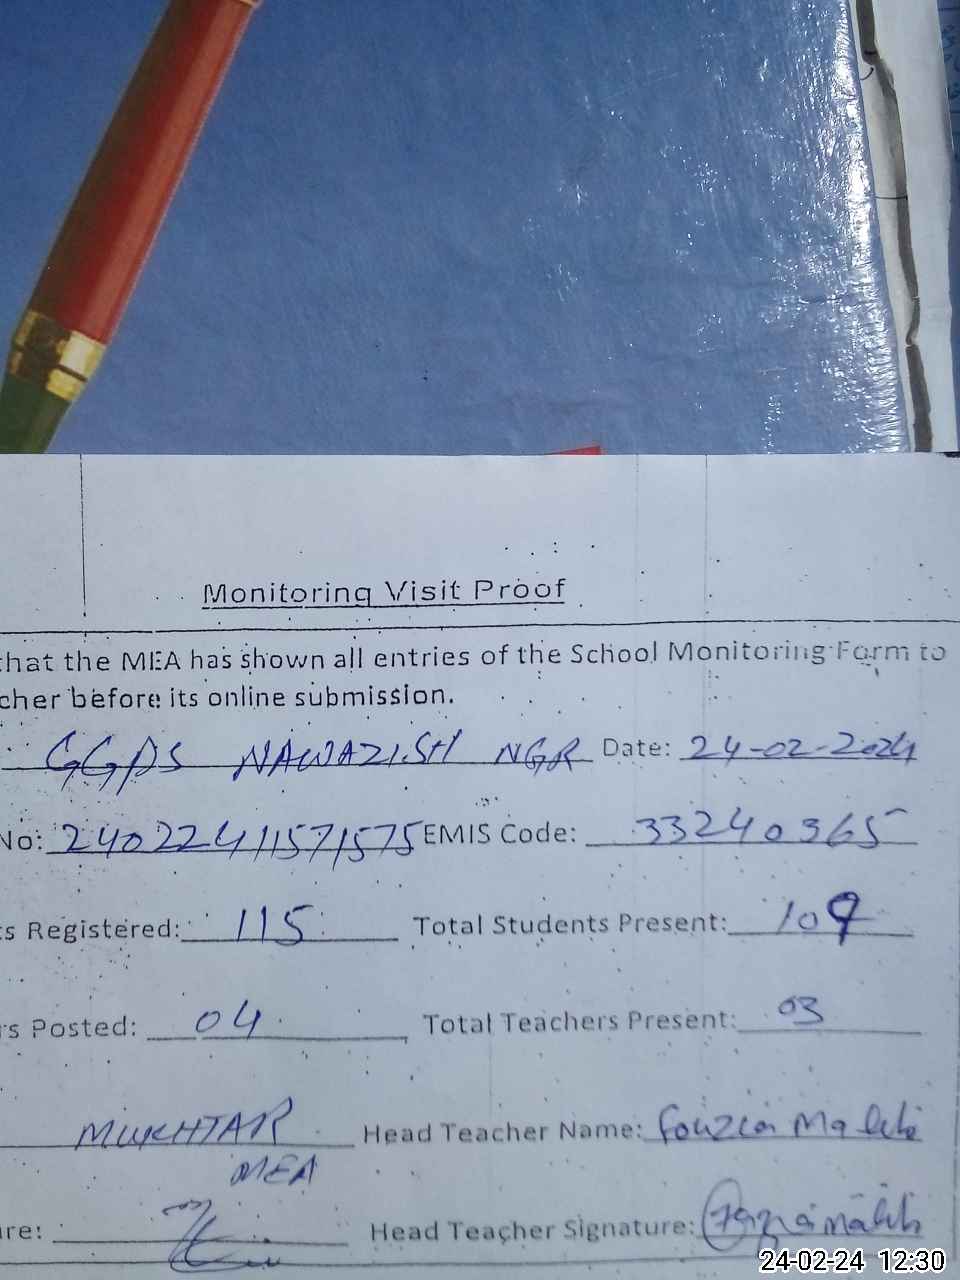 Monitoring Visit Proof
that the MEA has shown all entries of the School Monitoring Form to
cher before its online submission.
GGPS NAWAZISH NGR Date: 24-02-2024
No: 24022411571575 EMIS Code: 33240365
ts Registered: 115 Total Students Present: 109
rs Posted: 04 Total Teachers Present: 03
MUKHTAR Head Teacher Name: Fouzia Malik
MEA
ure: Head Teacher Signature:
24-02-24 12:30